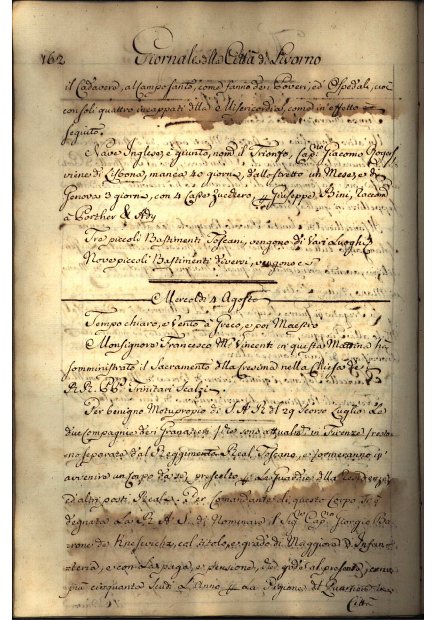 162 Giornale della Città di Livorno
il Cadavere, al Camposanto, come fanno dei Poveri, ed Ospedali, ac
con soli quattro incappati della Misericordia, come in effetto è
seguito.
Nave Inglese, è giunto, nom.^e il Trionfo, Cap.^no Giacomo
viene di Lisbona, manca 40 giorni, dallo stretto un Mese, e da
Genova 3 giorni, con 4 Casse Zucchero Giuseppe Bini, Raccom.
a Porther & Ady
Tre piccoli Bastimenti Toscani, vengono di Vari Luoghi
Nove piccoli Bastimenti diversi, vengono
Mercoldì 4 Agosto
Tempo chiaro, e Vento a Greco, e poi Maestro
Monsignore Francesco M.^a Vincenti in questa Mattina ha
somministrato il Sacramento della Cresima nella Chiesa de
R.R. P.P. Trinitari Scalzi
Per benigno Motuproprio di S. A. R. del 29 Scorso Luglio Le
due Compagnie dei Granatieri che sono attualm. in Firenze restano
separate dal Reggimento Real Toscano, e formeranno in
avvenire un Corpo da se, prescelto La Guardia della Residenza,
ed altri posti Reali. Per Comandante di questo Corpo si è
degnata La R. A. S. di Nominare il Sig.^re Cap.^no Giorgio Ba
rone de Knesevich, col titolo, e grado di Maggiore d'Infan
teria, e con la paga, e pensione, che gode al presente, con
più cinquanta Scudi L'Anno La Pigione del Quartiere
Città